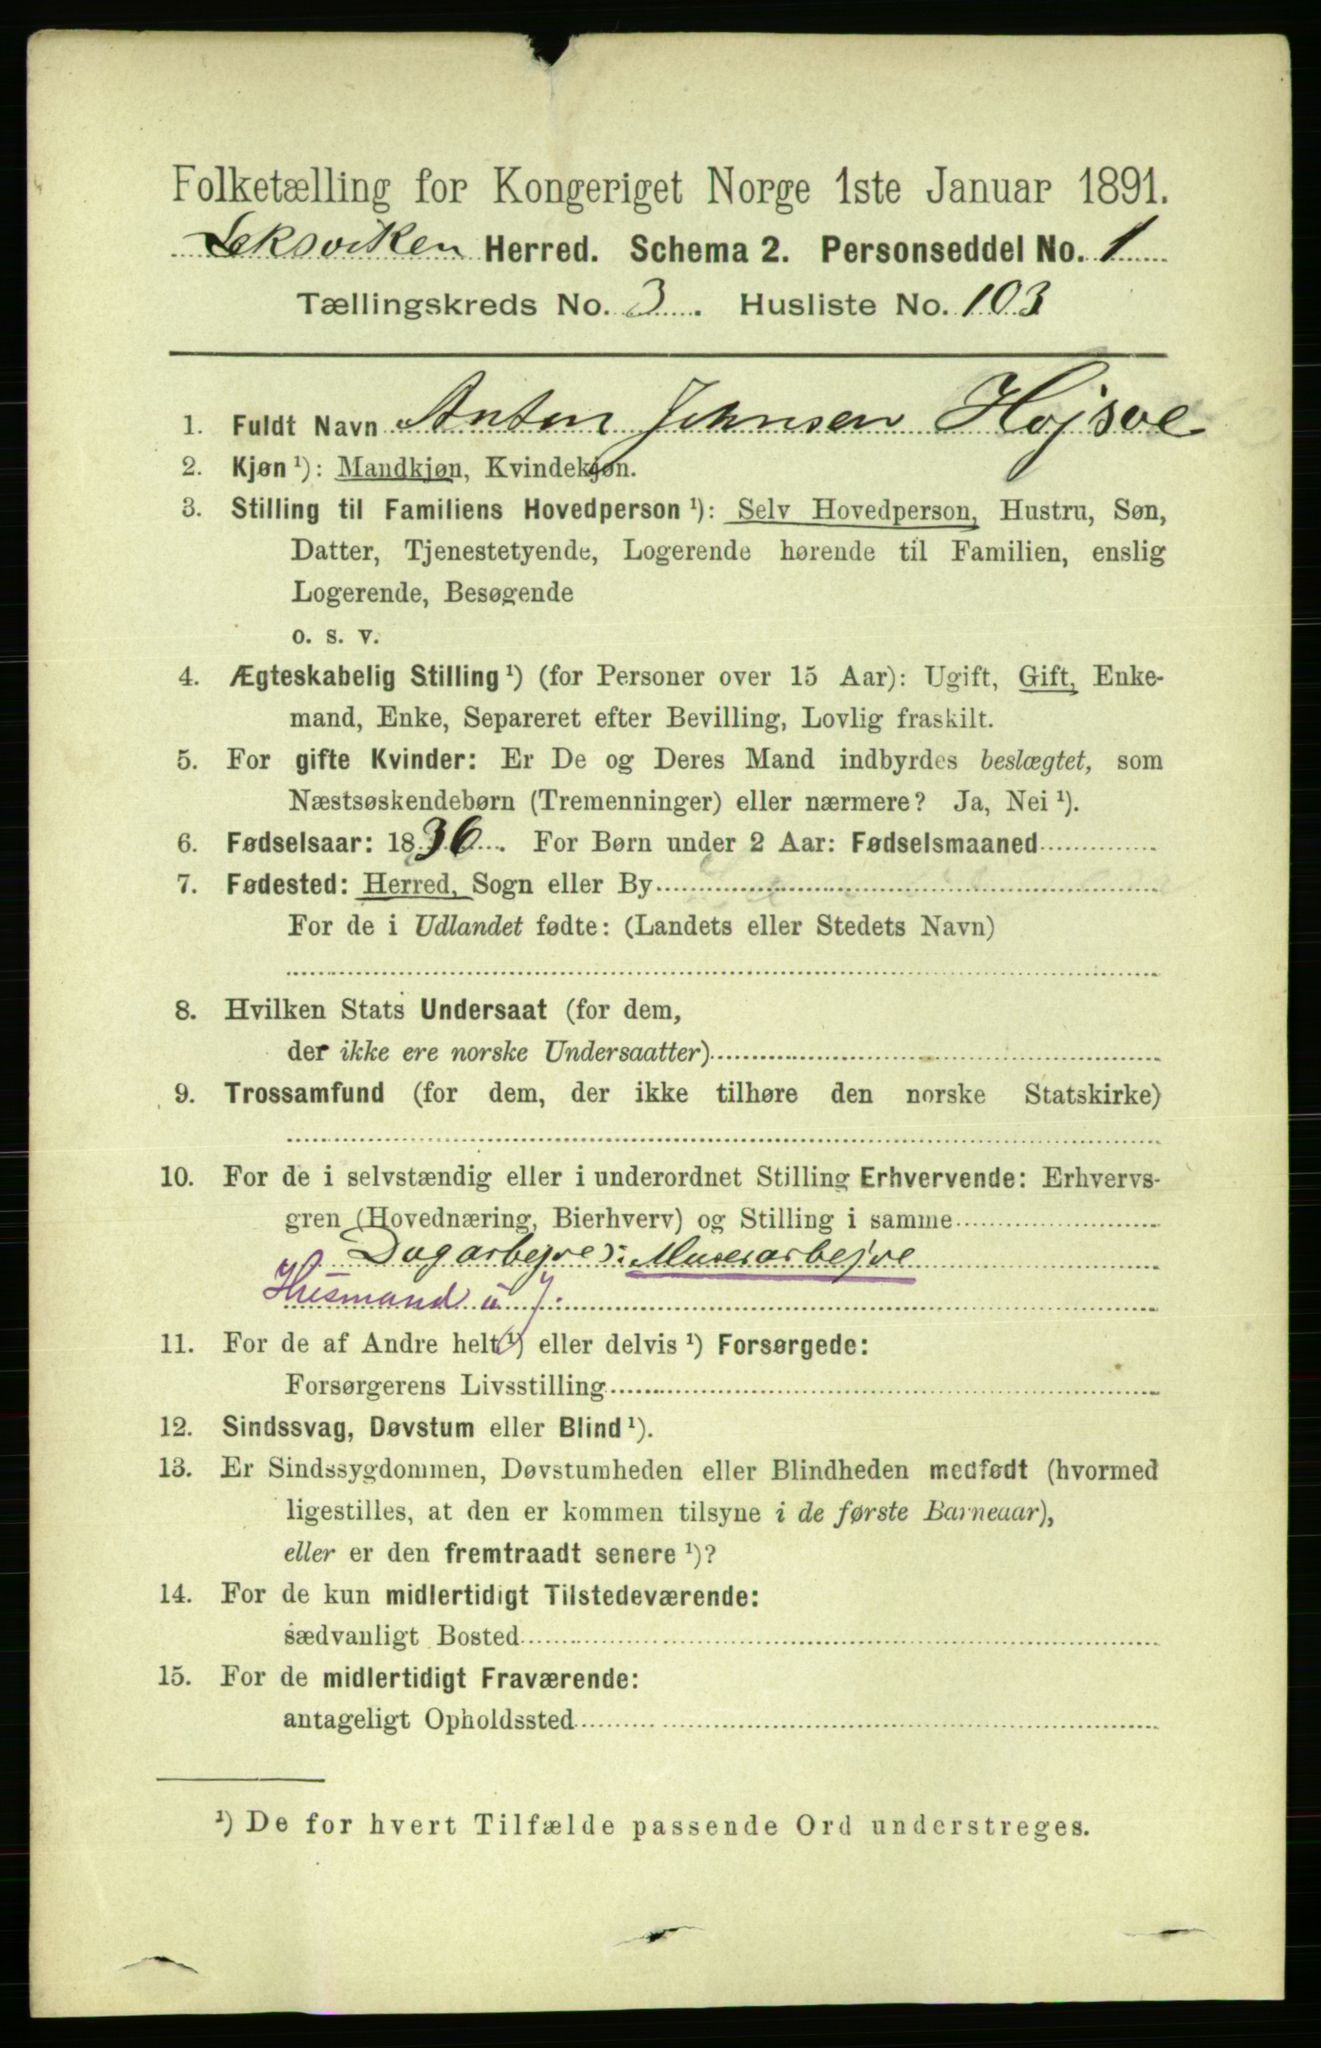 Folketælling for Kongeriget Norge 1ste Januar 1891.
Leksviken Herred. Schema 2. Personseddel No. 1
Tællingskreds No. 3. Husliste No. 103
1. Fuldt Navn Anton Johnsen Hojsve
2. Kjøn ¹): Mandkjøn, Kvindekjøn.
3. Stilling til Familiens Hovedperson ¹): Selv Hovedperson, Hustru, Søn,
Datter, Tjenestetyende, Logerende hørende til Familien, enslig
Logerende, Besøgende
o. s. v.
4. Ægteskabelig Stilling ¹) (for Personer over 15 Aar): Ugift, Gift, Enke-
mand, Enke, Separeret efter Bevilling, Lovlig fraskilt.
5. For gifte Kvinder: Er De og Deres Mand indbyrdes beslægtet, som
Næstsøskendebørn (Tremenninger) eller nærmere? Ja, Nei ¹).
6. Fødselsaar: 1836. For Børn under 2 Aar: Fødselsmaaned
7. Fødested: Herred, Sogn eller By
For de i Udlandet fødte: (Landets eller Stedets Navn)
8. Hvilken Stats Undersaat (for dem,
der ikke ere norske Undersaatter)
9. Trossamfund (for dem, der ikke tilhøre den norske Statskirke)
10. For de i selvstændig eller i underordnet Stilling Erhvervende: Erhvervs-
gren (Hovednæring, Bierhverv) og Stilling i samme
Dagarbejde): Murerarbejde
Husmand u J.
11. For de af Andre helt ¹) eller delvis ¹) Forsørgede:
Forsørgerens Livsstilling
12. Sindssvag, Døvstum eller Blind ¹).
13. Er Sindssygdommen, Døvstumheden eller Blindheden medfødt (hvormed
ligestilles, at den er kommen tilsyne i de første Barneaar),
eller er den fremtraadt senere ¹)?
14. For de kun midlertidigt Tilstedeværende:
sædvanligt Bosted
15. For de midlertidigt Fraværende:
antageligt Opholdssted
¹) De for hvert Tilfælde passende Ord understreges.